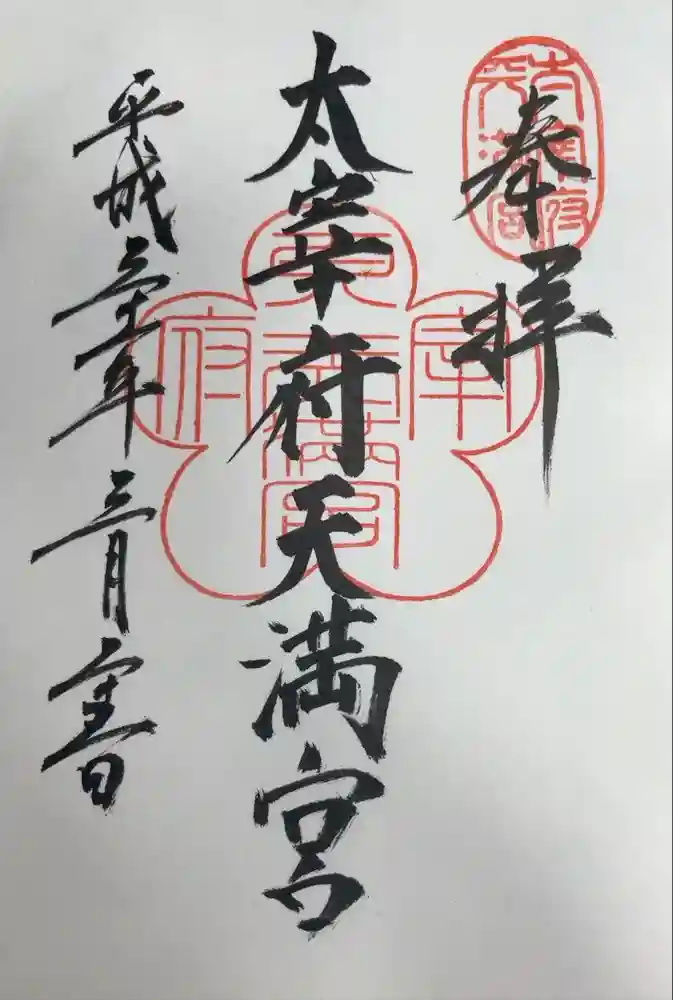 太宰府天満宮
奉拝
太宰府天満宮
平成年三月日